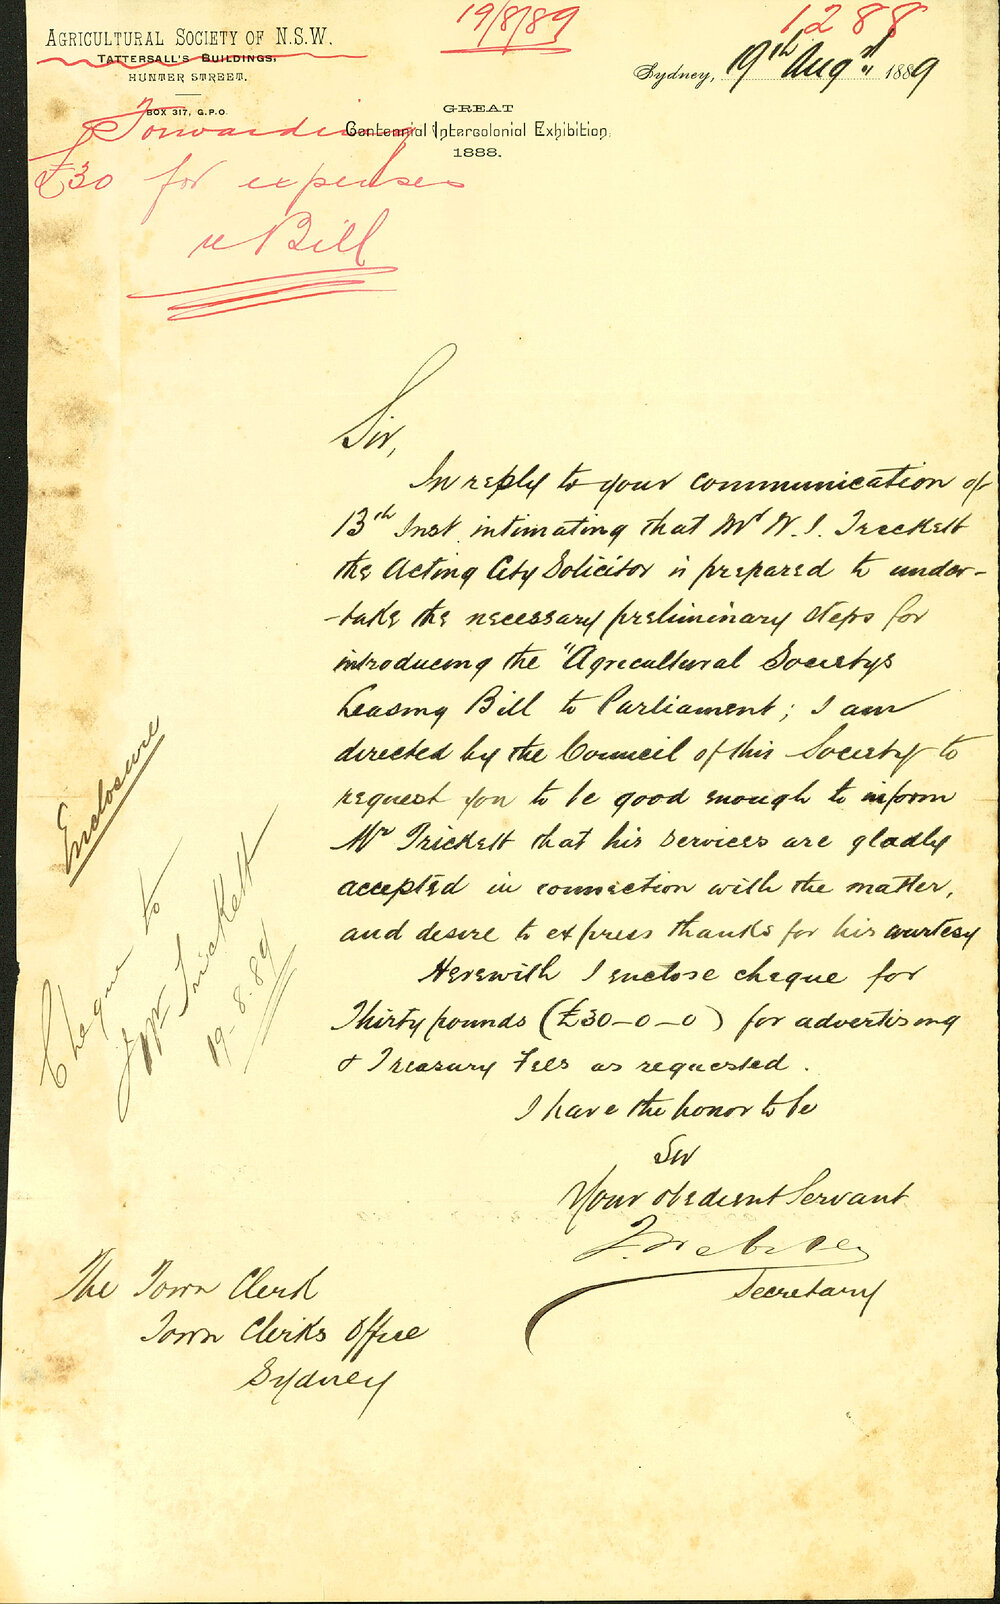 19/8/89
1288
AGRICULTURAL SOCIETY OF N.S.W.
TATTERSALL'S BUILDINGS,
HUNTER STREET.
BOX 317, G.P.O.
Sydney, 19th Augst 1889
GREAT
Centennial Intercolonial Exhibition,
1888.
Forwarding
£30 for expenses
re Bill
Sir,
In reply to your communication of
13th Inst. intimating that Mr W. J. Trickett
the Acting City Solicitor is prepared to under-
-take the necessary preliminary steps for
introducing the "Agricultural Societys
Leasing Bill to Parliament; I am
directed by the Council of this Society to
request you to be good enough to inform
Mr Trickett that his services are gladly
accepted in connection with the matter,
and desire to express thanks for his courtesy
Herewith I enclose cheque for
Thirty pounds (£30-0-0) for advertising
& Treasury Fees as requested.
I have the honor to be
Sir
Your obedient Servant
F. Webster
Secretary
Enclosure
Cheque to
Mr Trickett
19-8-89
The Town Clerk
Town Clerks Office
Sydney